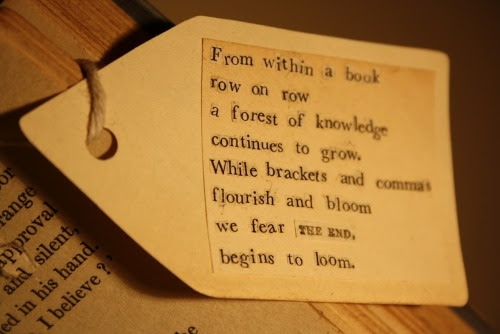 From within a book
row on row
a forest of knowledge
continues to grow.
While brackets and commas
flourish and bloom
we fear THE END,
begins to loom.
or
range
approval
and silent,
ed in his hand.
I believe?
he